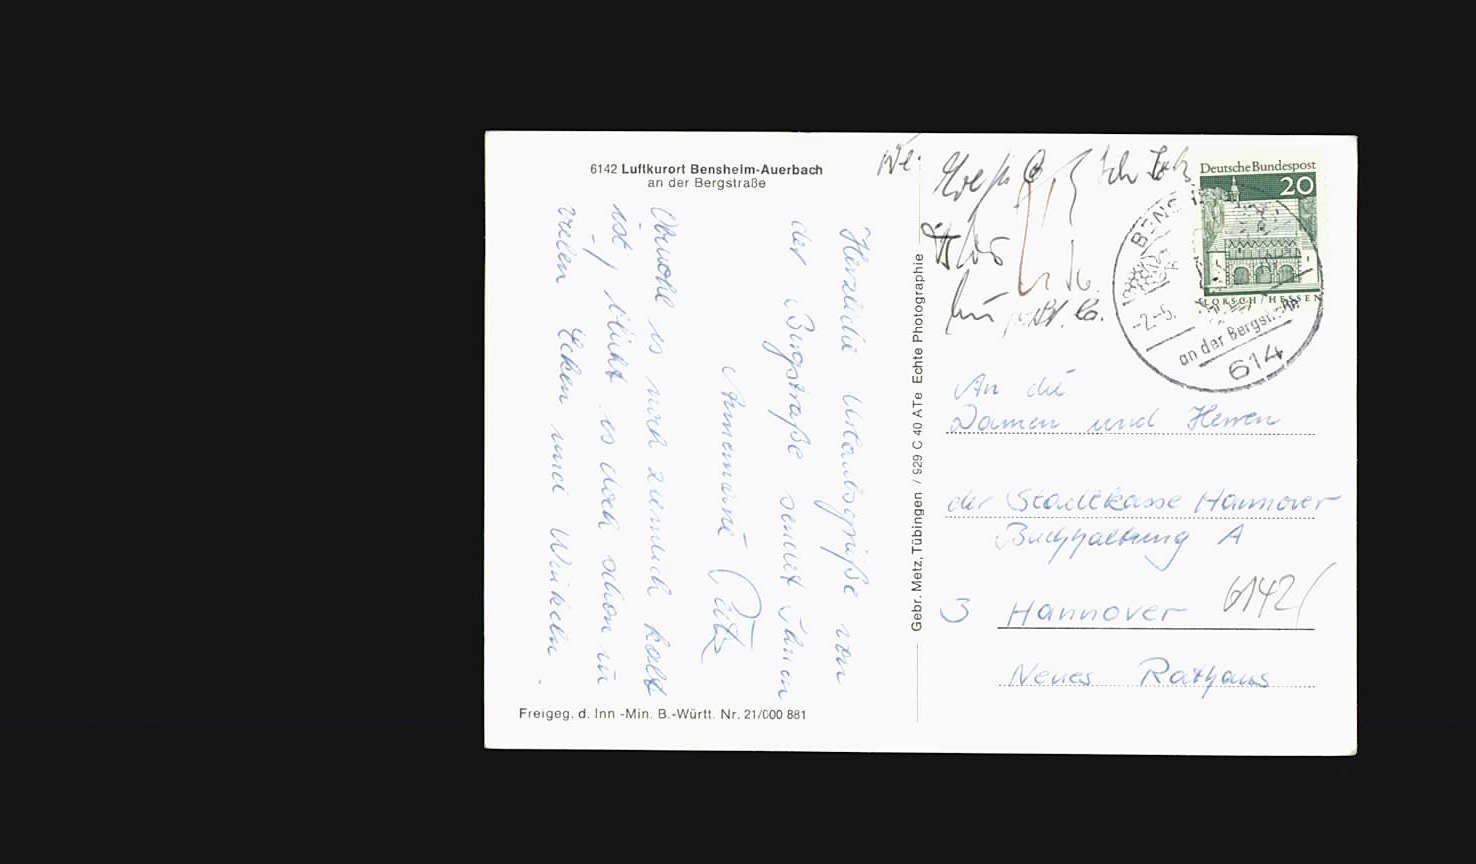 6142 Luftkurort Bensheim-Auerbach
an der Bergstraße
Herzliche Urlaubsgrüße von
der Bergstraße sendet Ihnen
Annemarie
Obwohl es noch ziemlich kalt
ist, blüht es doch schon in
vielen Ecken und Winkeln.
Freigeg. d. Inn.-Min. B.-Württ. Nr. 21/000 881
Gebr. Metz, Tübingen / 929 C 40 ATe Echte Photographie
Deutsche Bundespost
20
LORSCH / HESSEN
BENS
-2.-5.
an der Bergstraße
614
An die
Damen und Herren
der Stadtkasse Hannover
Buchhaltung A
3 Hannover
6142
Neues Rathaus